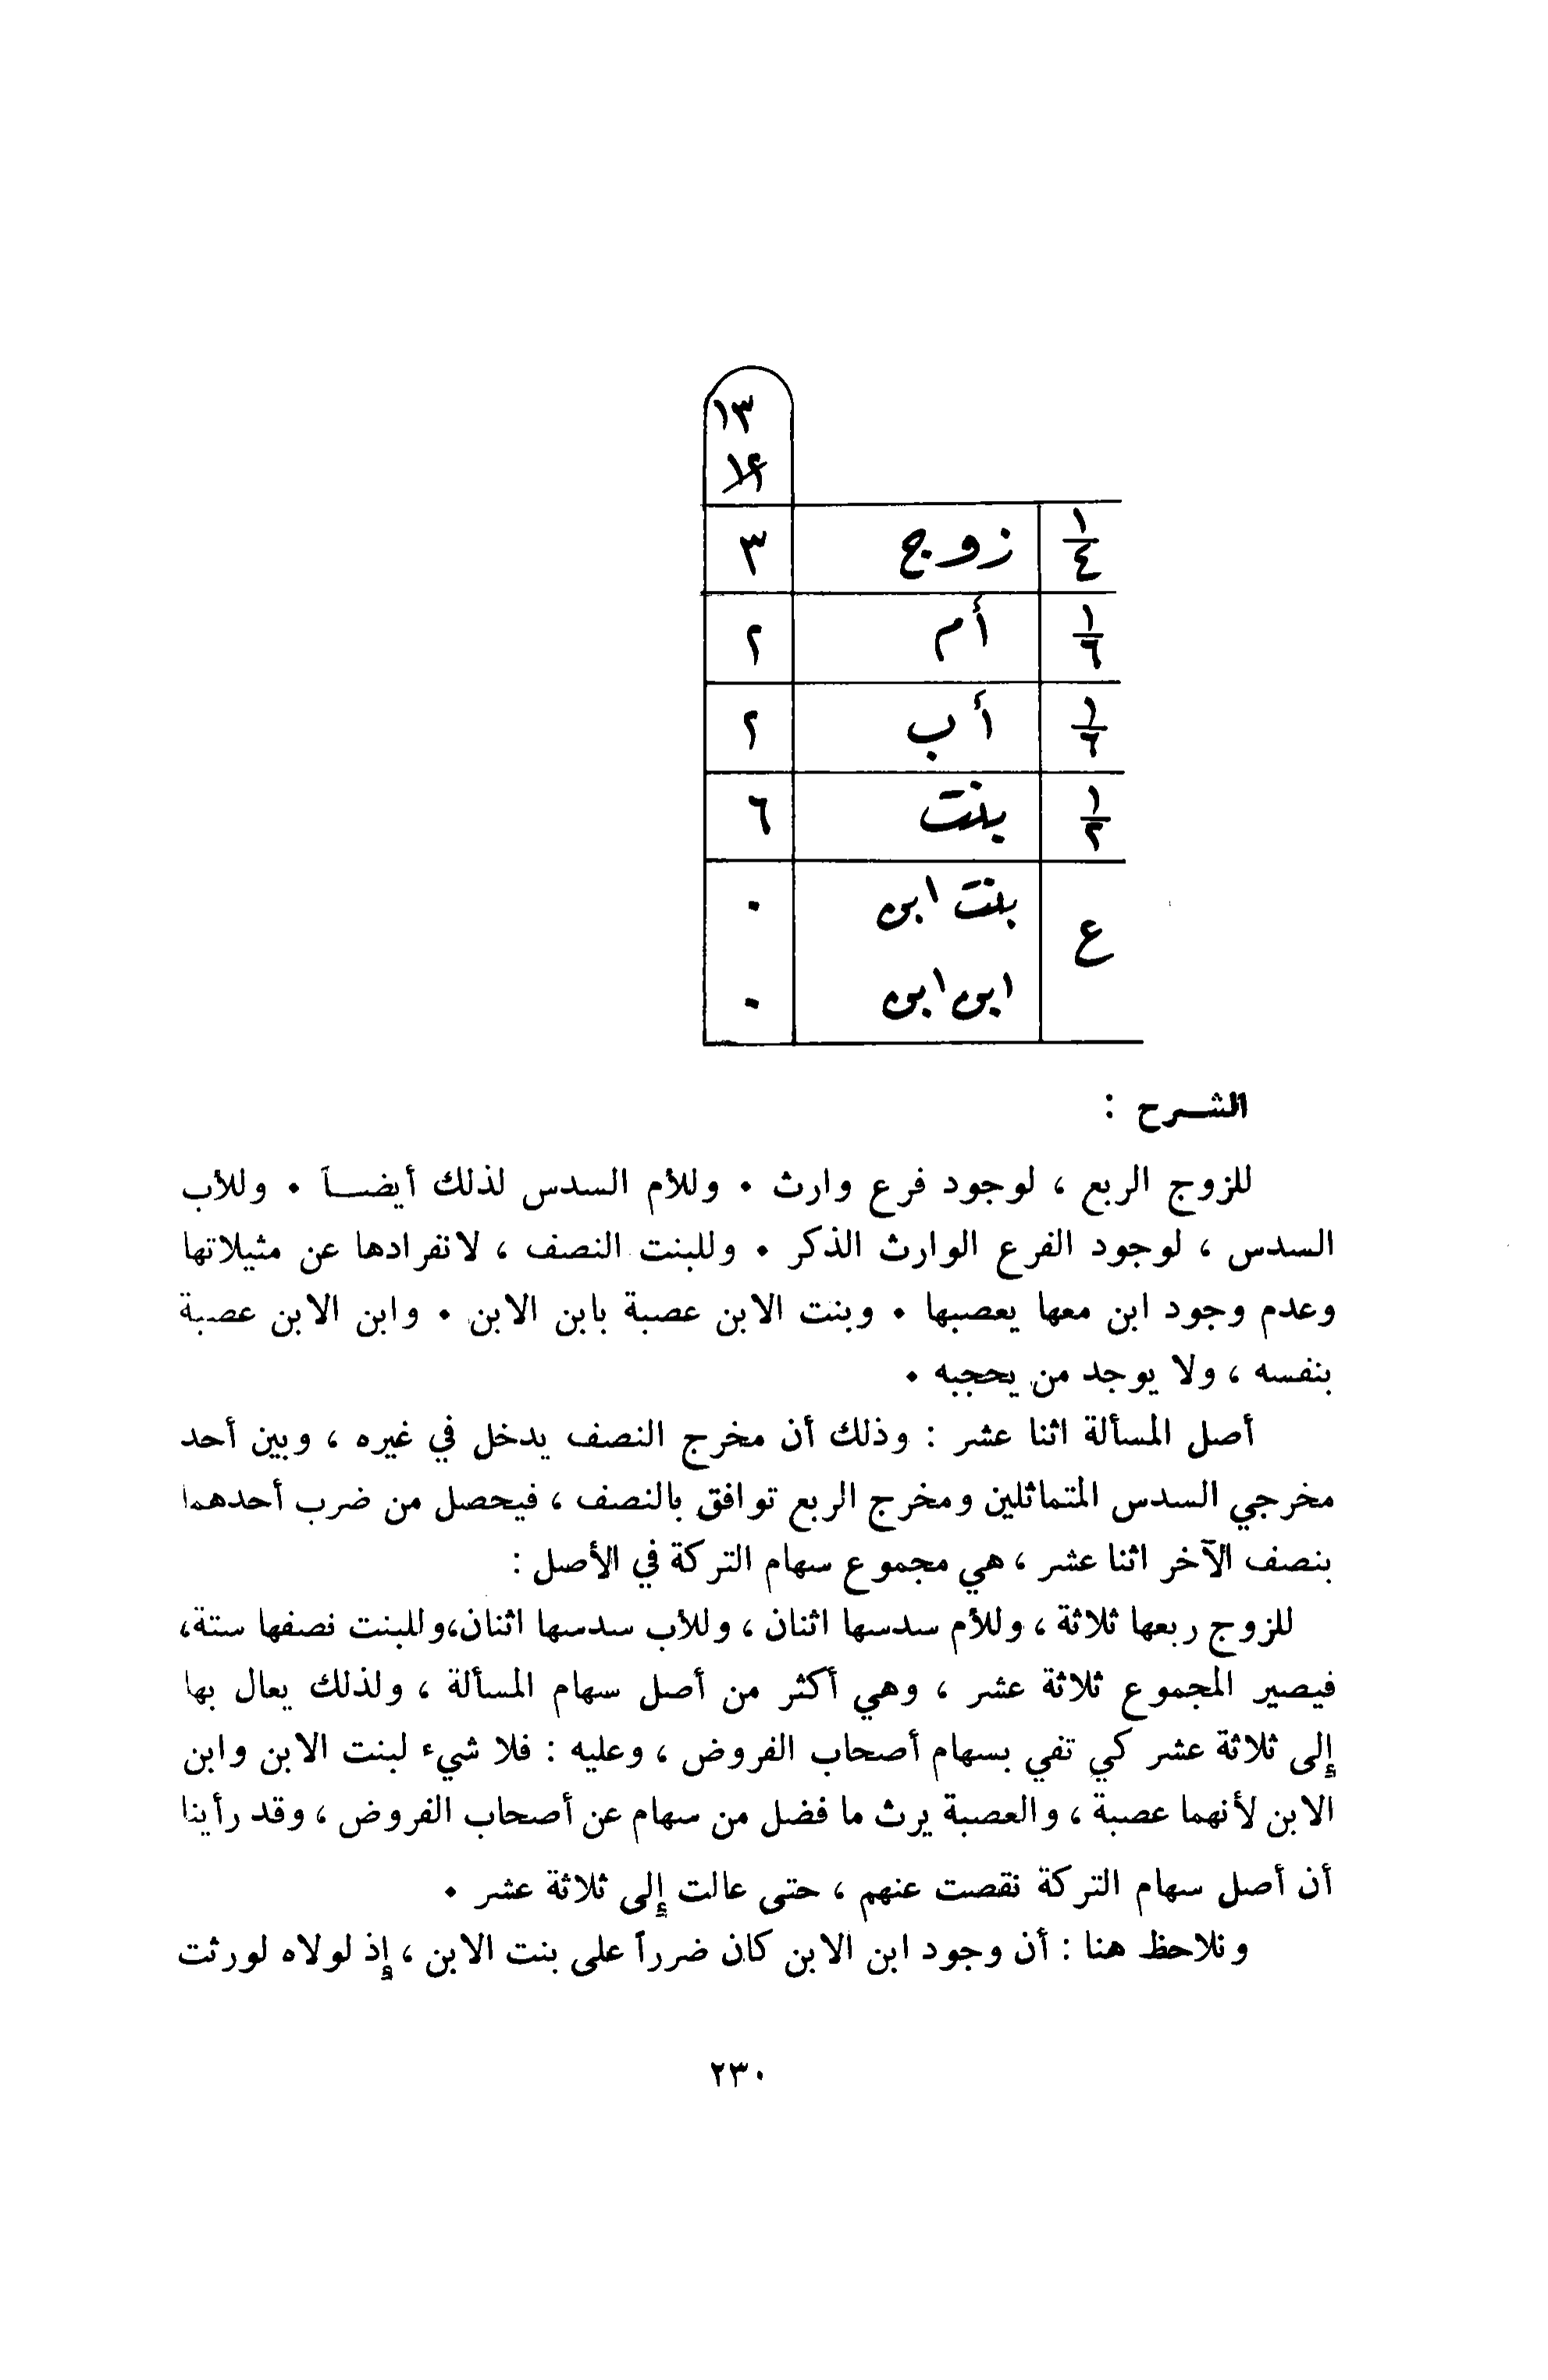 ١٣
١٢
١/٤ زوج ٣
١/٦ أم ٢
١/٦ أب ٢
١/٢ بنت ٦
ع بنت ابن ٠
ابن ابن ٠
الشرح :
للزوج الربع ، لوجود فرع وارث . وللأم السدس لذلك أيضاً . وللأب
السدس ، لوجود الفرع الوارث الذكر . وللبنت النصف ، لانفرادها عن مثيلاتها
وعدم وجود ابن معها يعصبها . وبنت الابن عصبة بابن الابن . وابن الابن عصبة
بنفسه ، ولا يوجد من يحجبه .
أصل المسألة اثنا عشر : وذلك أن مخرج النصف يدخل في غيره ، وبين أحد
مخرجي السدس المتماثلين ومخرج الربع توافق بالنصف ، فيحصل من ضرب أحدهما
بنصف الآخر اثنا عشر ، هي مجموع سهام التركة في الأصل :
للزوج ربعها ثلاثة ، وللأم سدسها اثنان ، وللأب سدسها اثنان،وللبنت نصفها ستة،
فيصير المجموع ثلاثة عشر ، وهي أكثر من أصل سهام المسألة ، ولذلك يعال بها
إلى ثلاثة عشر كي تفي بسهام أصحاب الفروض ، وعليه : فلا شيء لبنت الابن وابن
الابن لأنهما عصبة ، والعصبة يرث ما فضل من سهام عن أصحاب الفروض ، وقد رأينا
أن أصل سهام التركة نقصت عنهم ، حتى عالت إلى ثلاثة عشر .
ونلاحظ هنا : أن وجود ابن الابن كان ضرراً على بنت الابن ، إذ لولاه لورثت
٢٣٠